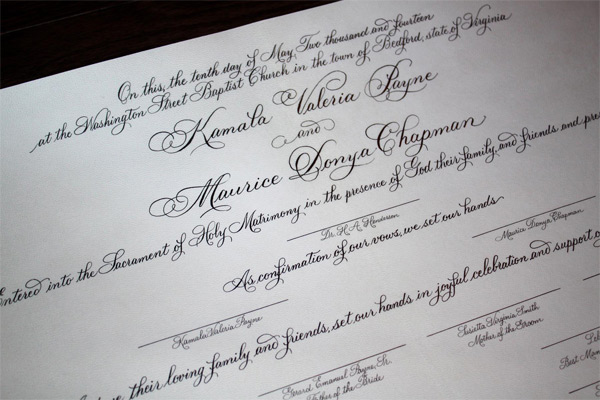 On this, the tenth day of May, Two thousand and fourteen
at the Washington Street Baptist Church in the town of Bedford, state of Virginia
Kamala Valeria Payne
and
Maurice Donya Chapman
entered into the Sacrament of Holy Matrimony in the presence of God their family, and friends and
Dr. H. A. Henderson
Maurice Donya Chapman
As confirmation of our vows, we set our hands
Kamala Valeria Payne
their loving family and friends, set our hands in joyful celebration and support
Surietta Virginia Smith
Mother of the Groom
Gerard Emanuel Payne, Sr.
Father of the Bride
Best